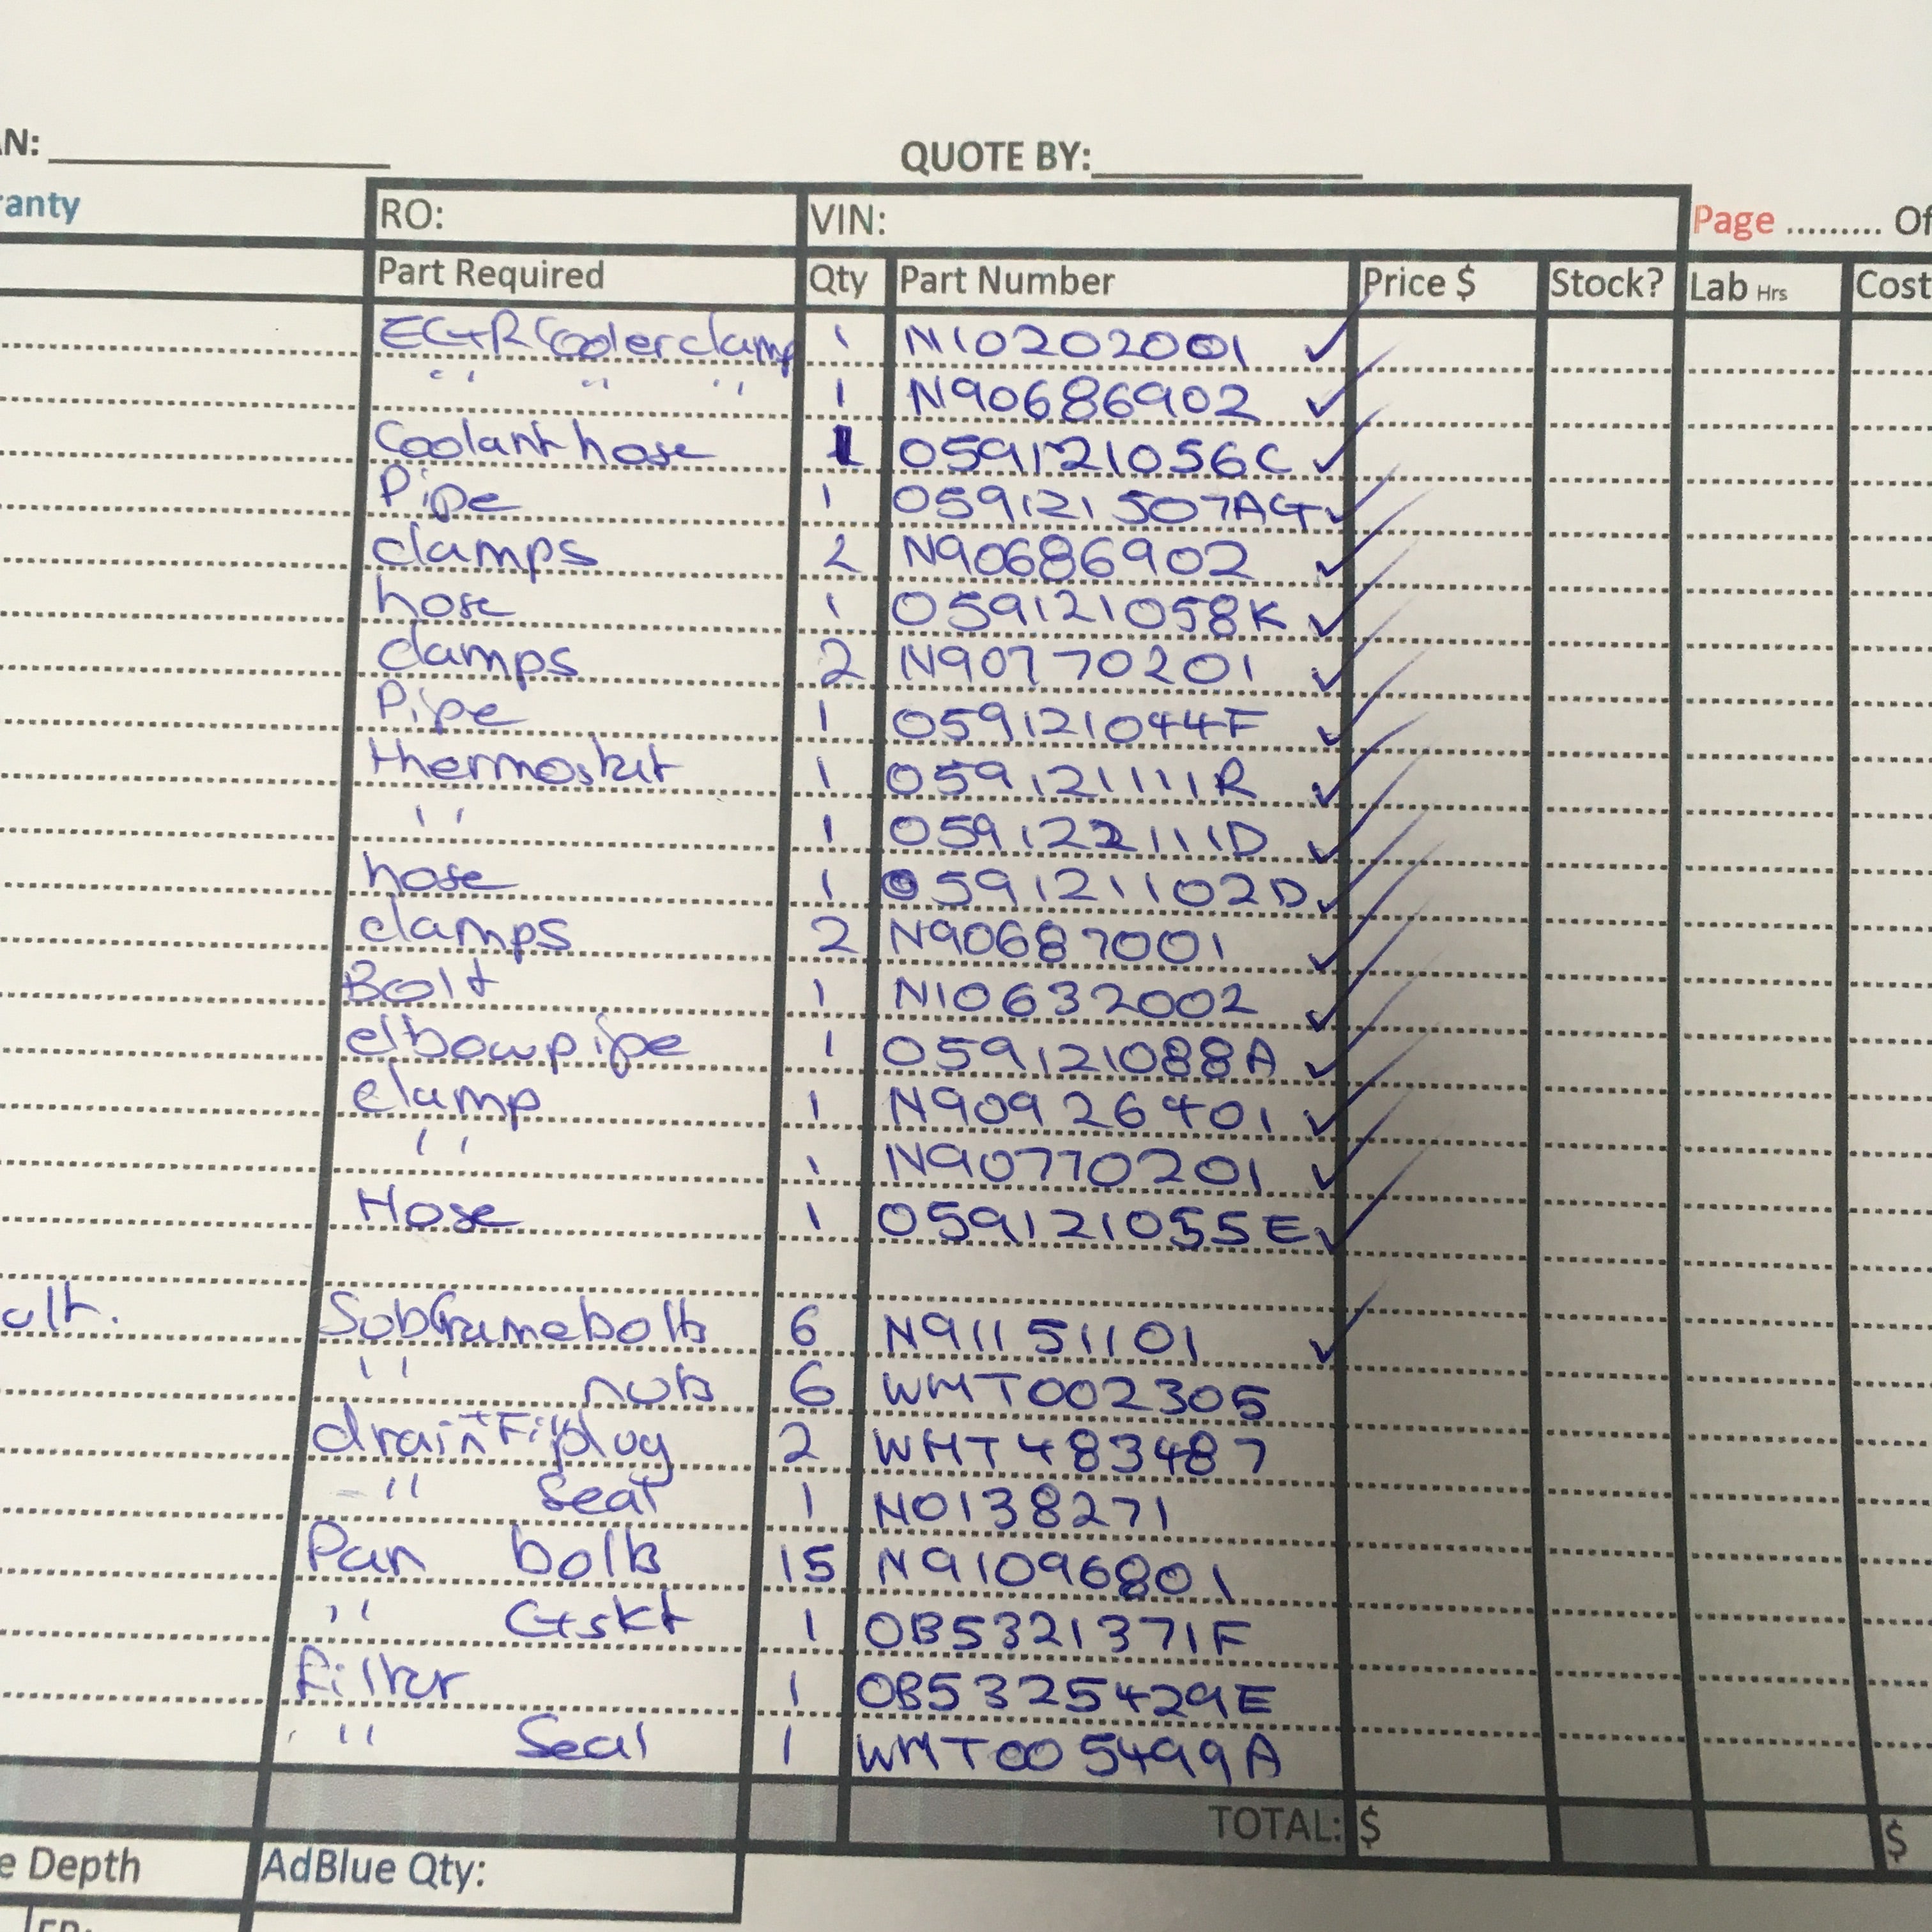 AN: ________ QUOTE BY: ________
ranty RO: VIN: Page ......... Of
Part Required Qty Part Number Price $ Stock? Lab Hrs Cost
EGR Cooler clamp 1 N10202001 ✓
" " " 1 N90686902 ✓
Coolant hose 1 059121056C ✓
Pipe 1 059121507AG ✓
clamps 2 N90686902 ✓
hose 1 059121058K ✓
clamps 2 N90770201 ✓
Pipe 1 059121044F ✓
thermostat 1 059121111R ✓
" 1 059122111D ✓
hose 1 059121102D ✓
clamps 2 N90687001 ✓
Bolt 1 N10632002 ✓
elbow pipe 1 059121088A ✓
clamp 1 N90926401 ✓
" 1 N90770201 ✓
Hose 1 059121055E ✓
Subframe bolts 6 N91151101 ✓
" nuts 6 WHT002305
drain + Fill plug 2 WHT483487
" Seal 1 N0138271
Pan bolts 15 N91096801
" Gskt 1 0B5321371F
filter 1 0B5325429E
" Seal 1 WHT005499A
TOTAL: $ $
e Depth AdBlue Qty: